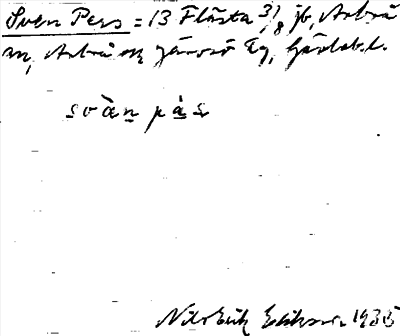 Sven Pers = 13 Flästa 3/8 jb, Arbrå
sn, Arbrå och Järvsö tg, Gävleb. l.
svàn pás
Nils Erik Eriksson 1935